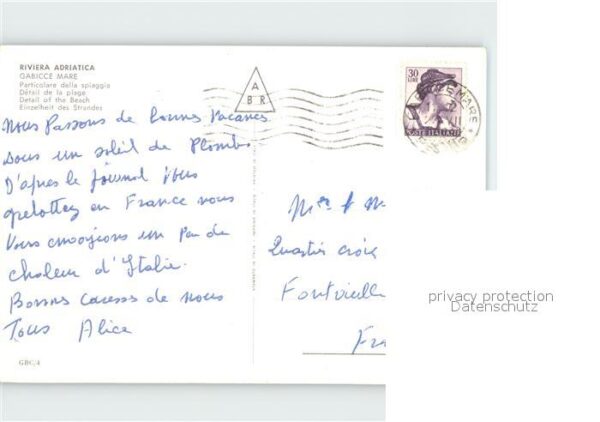 RIVIERA ADRIATICA
GABICCE MARE
Particolare della spiaggia
Détail de la plage
Detail of the Beach
Einzelheit des Strandes
A
B R
30
LIRE
POSTE ITALIANE
Nous Passons de bonnes vacances
sous un soleil de Plombs
D'apres le Journal Vous
grelottez en France nous
Vous envoyions un Peu de
chaleur d'Italie.
Bonnes caresses de nous
Tous Alice
Mr & M
Quartier croix
Fontvieille
Fra
GBC/4
privacy protection
Datenschutz